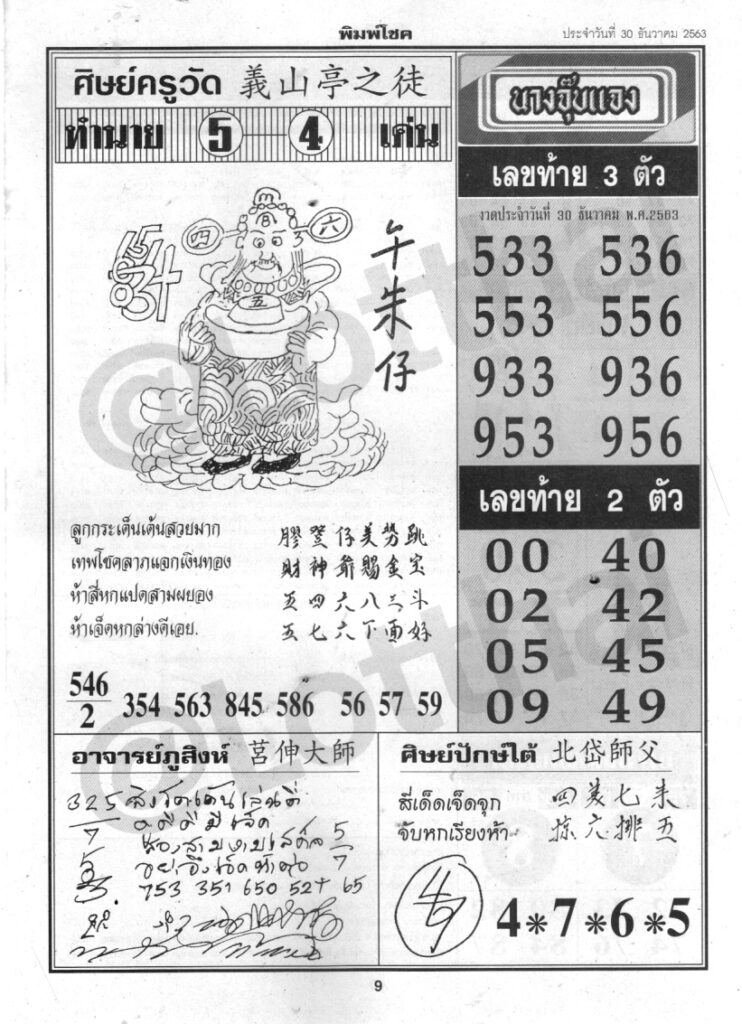 พิมพ์โชค
ประจำวันที่ 30 ธันวาคม 2563
ศิษย์ครูวัด 義山亭之徒
ทำนาย 5—4 เด่น
四 六
五
午朱仔
ลูกกระเด็นเต้นสวยมาก
เทพโชคลาภแจกเงินทอง
ห้าสี่หกแปดสามผยอง
ห้าเจ็ดหกล่างดีเอย.
膠登仔美勞跳
財神爺賜金宝
五四六八三斗
五七六下面好
546
2
354 563 845 586 56 57 59
นางจุ๊บแจง
เลขท้าย 3 ตัว
งวดประจำวันที่ 30 ธันวาคม พ.ศ.2563
533 536
553 556
933 936
953 956
เลขท้าย 2 ตัว
00 40
02 42
05 45
09 49
อาจารย์ภูสิงห์ 莒伸大師
325
7
5
7
753 351 650 527 65
ศิษย์ปักษ์ใต้ 北岱師父
สี่เด็ดเจ็ดจุก
จับหกเรียงห้า
四美七朱
掠六排五
4*7*6*5
@Lotthai
@Lotthai
9